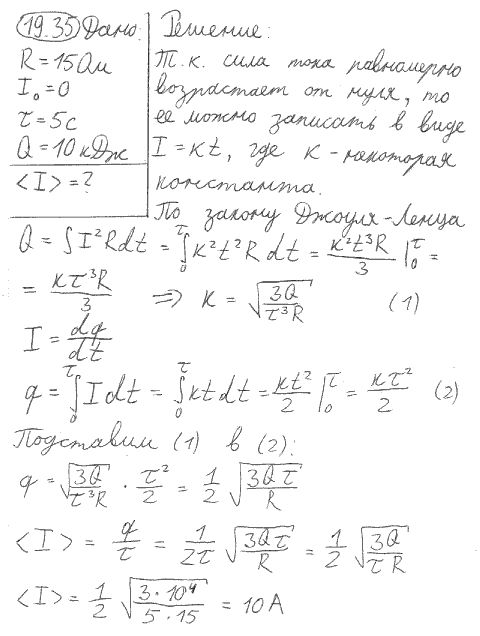 19.35 Дано:
R = 15 Ом
I₀ = 0
τ = 5 с
Q = 10 кДж
<I> = ?
Решение:
Т.к. сила тока равномерно
возрастает от нуля, то
ее можно записать в виде
I = kt, где k - некоторая
константа.
По закону Джоуля-Ленца
Q = ∫I²Rdt = ∫₀^τ k²t²R dt = k²t³R/3 |₀^τ =
= kτ³R/3 => k = √(3Q/τ³R) (1)
I = dq/dt
q = ∫₀^τ I dt = ∫₀^τ kt dt = kt²/2 |₀^τ = kτ²/2 (2)
Подставим (1) в (2):
q = √(3Q/τ³R) · τ²/2 = 1/2 √(3Qτ/R)
<I> = q/τ = 1/2τ √(3Qτ/R) = 1/2 √(3Q/τR)
<I> = 1/2 √(3·10⁴/5·15) = 10 А